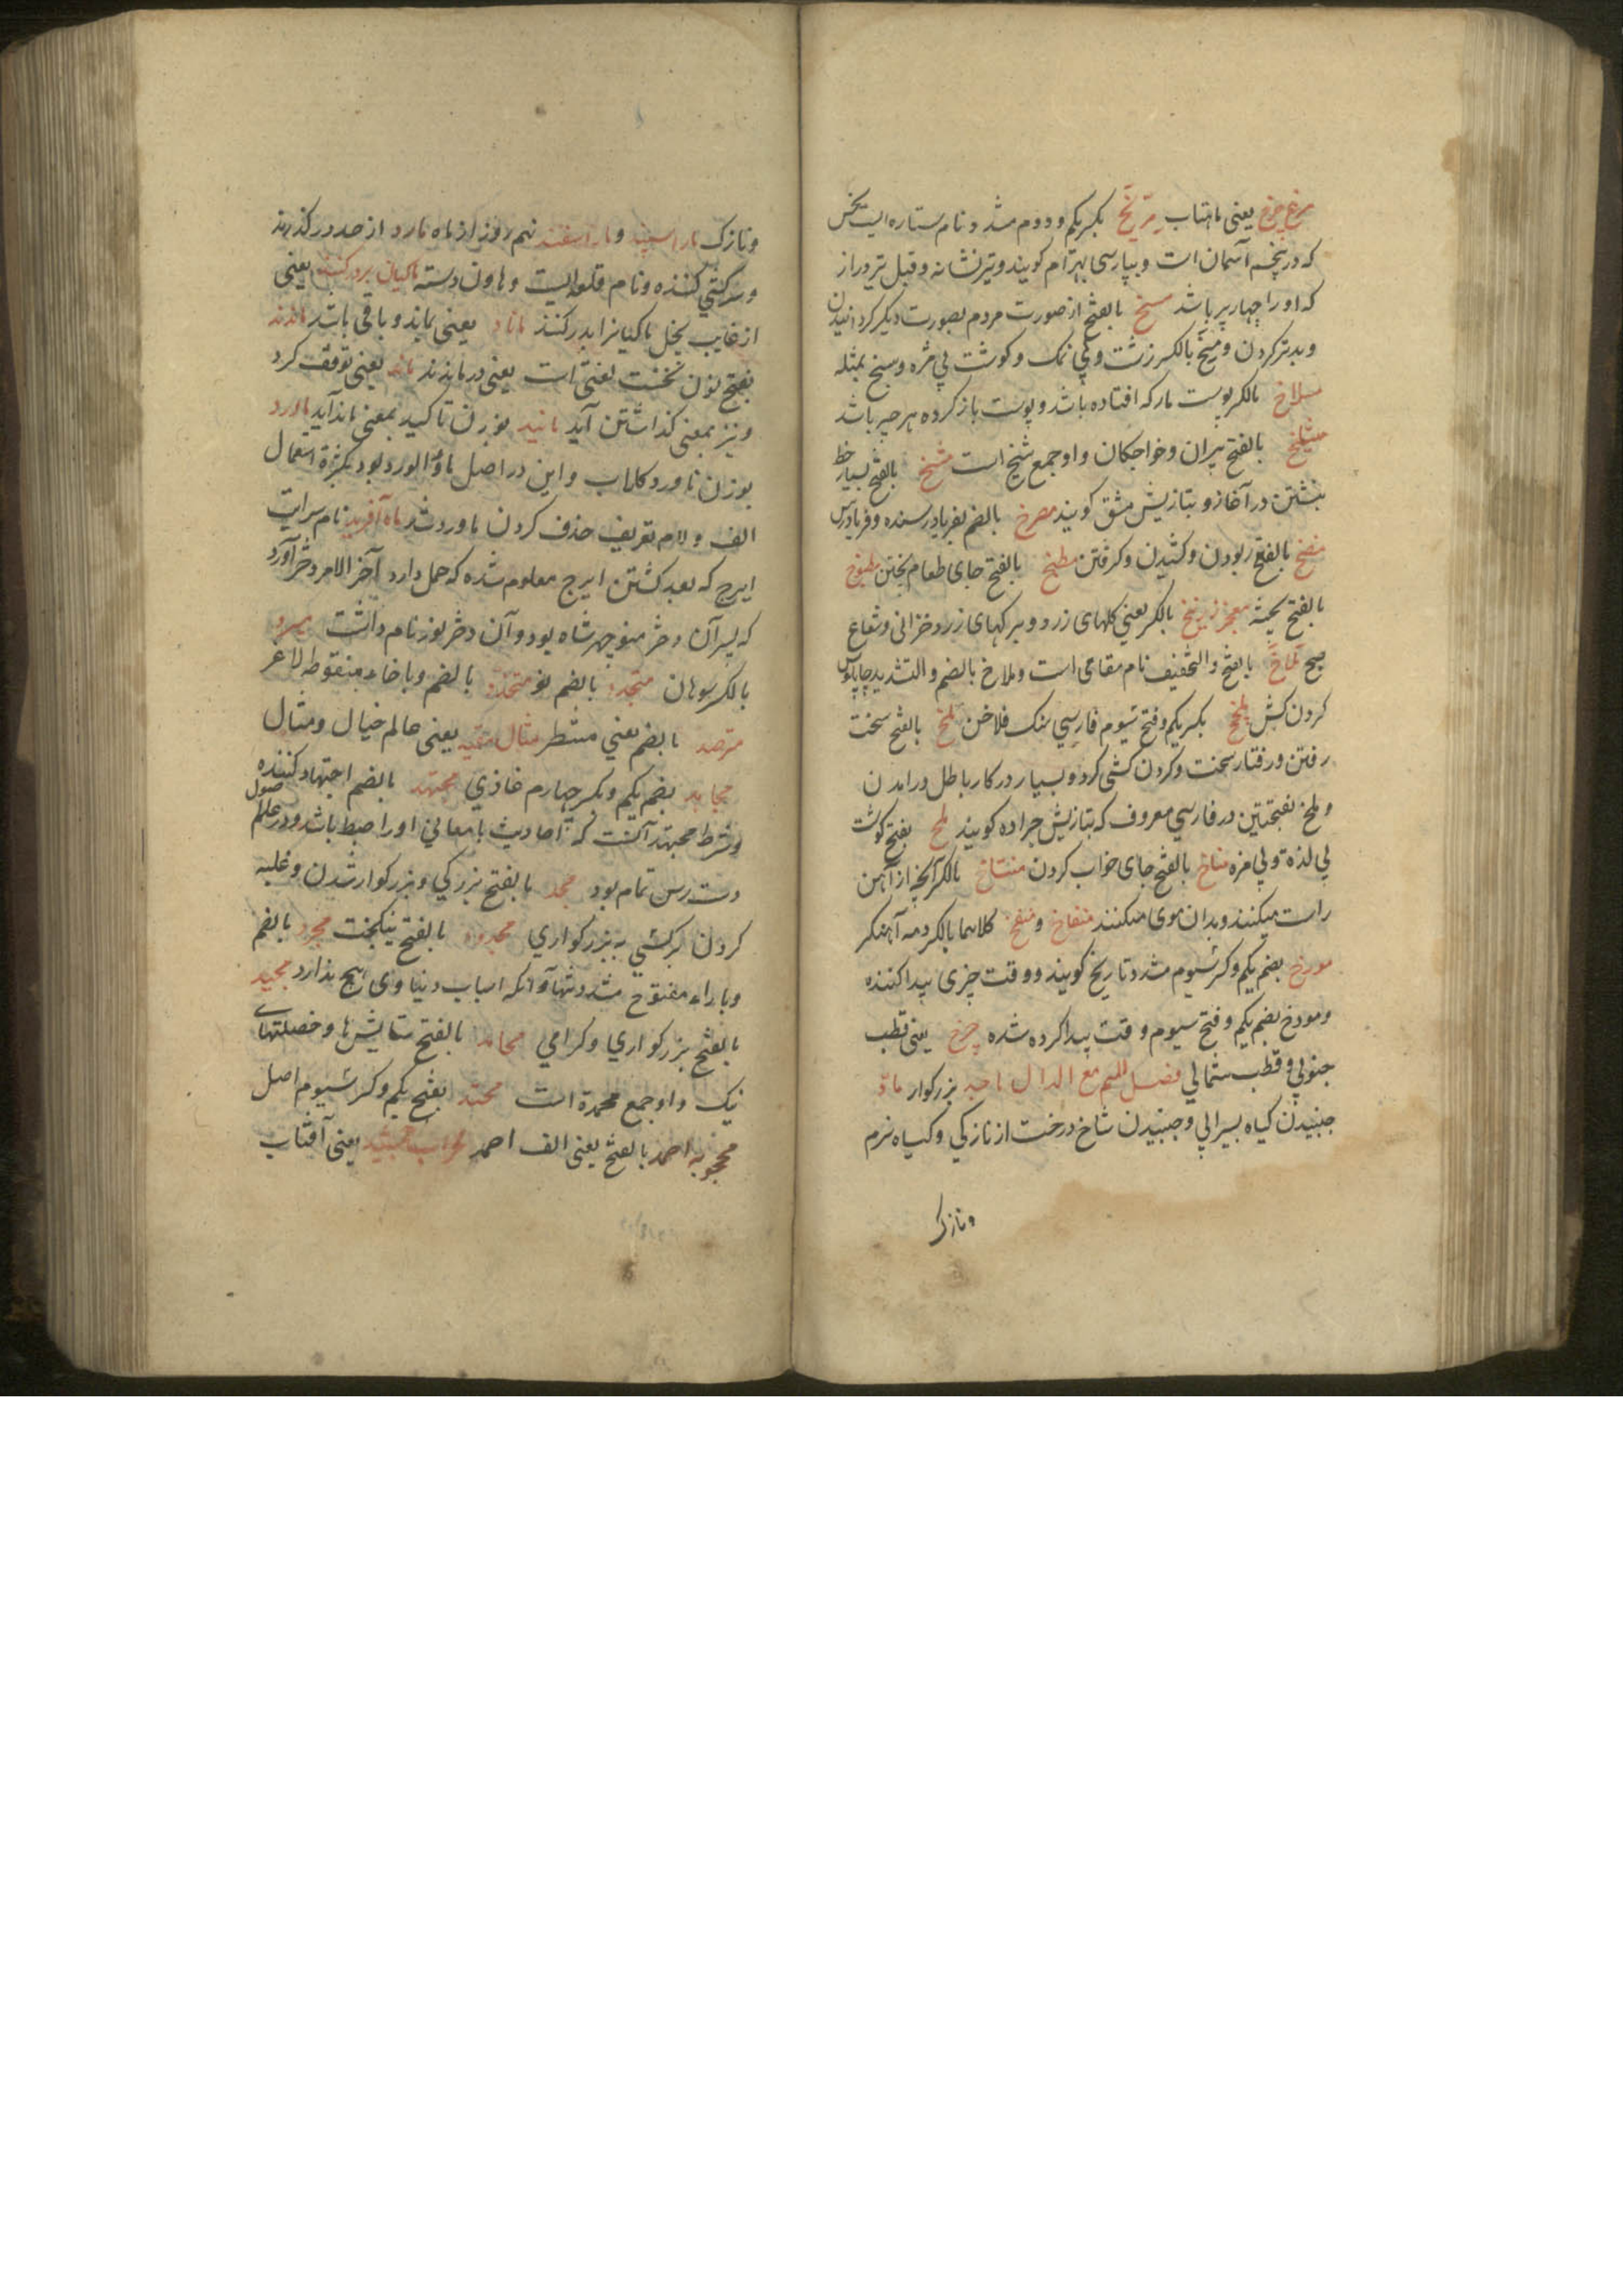 مرغ چرخ یعنی ماهتاب مریخ بکسر یکم و دوم مشدد نام ستاره ایست نحس
که در پنجم آسمان است و بپارسی بهرام کویند و تیر نشانه و قبل تیر دراز
که او را چهار پر باشد مسخ بالفتح از صورت مردم بصورت دیکر کردانیدن
و بدتر کردن و مسخ بالکسر زشت و بی نمک و کوشت بی مزه و مسخ بمثله
مسلاخ بالکسر پوست مار که افتاده باشد و پوست باز کرده هر چیز باشد
مشایخ بالفتح پیران و خواجکان و او جمع شیخ است مشخ بالفتح بسیار خط
نبشتن در آغاز و بتازیش مشق کویند مصرخ بالضم بفریاد رسنده و فریادرس
بالفتح ربودن و کشیدن و کرفتن مطبخ بالفتح جای طعام پختن مطبوخ
بالفتح پخته معجز زرنیخ بالکسر یعنی کلهای زرد و برکهای زرد خزانی و شعاع
صبح ملاخ بالفتح و التخفیف نام مقامی است و ملاخ بالضم و التشدید چاپلوس
کردن کش ملخ بکسر یکم و فتح سیوم فارسی سنک فلاخن ملخ بالفتح سخت
رفتن و رفتار سخت و کردن کشی کرد و بسیار در کار باطل درامدن
و ملخ بفتحتین در فارسی معروف که بتازیش جراده کویند ملخ بفتح کوشت
بی لذة و بی مزه مناخ بالفتح جای خواب کردن منتاخ بالکسر آنچه از آهن
راست میکنند و بدان موی میکنند منفاخ و منفخ کلاهما بالکسر دمه آهنکر
مورخ بضم یکم و کسر سیوم مشدد تاریخ کویند و وقت چیزی پیدا کننده
و مورخ بضم یکم و فتح سیوم وقت پیدا کرده شده چرخ یعنی قطب
جنوبی و قطب شمالی فصل المیم مع الدال ماجد بزرکوار ماد
جنبیدن کیاه بسیرابی و جنبیدن شاخ درخت از نازکی و کیاه نرم
و نازک
و نازک مار اسپند و مار اسفند نهم روز از ماه مارد از حد در کذرند
و سرکشی کننده و نام قلعه ایست و هاون دسته ماکیان بدر کند یعنی
از غایت بخل ماکیانرا بدر کنند ماناد یعنی بماند و باقی باشد ماندند
بفتح نون نخست لغتی است یعنی در ماندند ماند یعنی توقف کرد
و نیز بمعنی کذاشتن آید مانید بوزن تاکید بمعنی ماند آید ماورد
بوزن ناورد کلاب و این در اصل ماؤ الورد بود بکثرة استعمال
الف و لام تعریف حذف کردن ماورد شد ماه آفرید نام سرایت
ایرج که بعد کشتن ایرج معلوم شده که حمل دارد آخر الامر دختر آورد
که پسر آن دختر منوچهر شاه بود و آن دختر بوز نام داشت مبرد
بالکسر سوهان متجدد بالضم نو متخدد بالضم و باخاء منقوطه لاغر
مترصد بالضم یعنی منتظر مثال مقید یعنی عالم خیال و مثال
مجاهد بضم یکم و بکسر چهارم غازی مجتهد بالضم اجتهاد کننده
و شرط مجتهد آنست که احادیث بامعانی او را ضبط باشد و در علم اصول
دست رس تمام بود مجد بالفتح بزرکی و بزرکوار شدن و غلبه
کردن بر کسی به بزرکواری مجدود بالفتح نیکبخت مجرد بالضم
و باراء مفتوح مشدد تنها و آنکه اسباب دنیاوی هیچ ندارد مجید
بالفتح بزرکواری و کرامی محامد بالفتح ستایش ها و خصلتهای
نیک و او جمع محمدة است محتد بفتح یکم و کسر سیوم اصل
محجوبه احمد بالفتح یعنی الف احمد محراب جمشید یعنی آفتاب